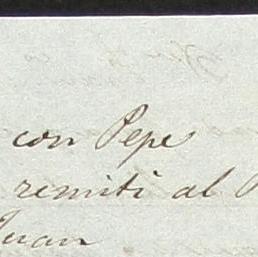 con Pepe
remiti al
Juan